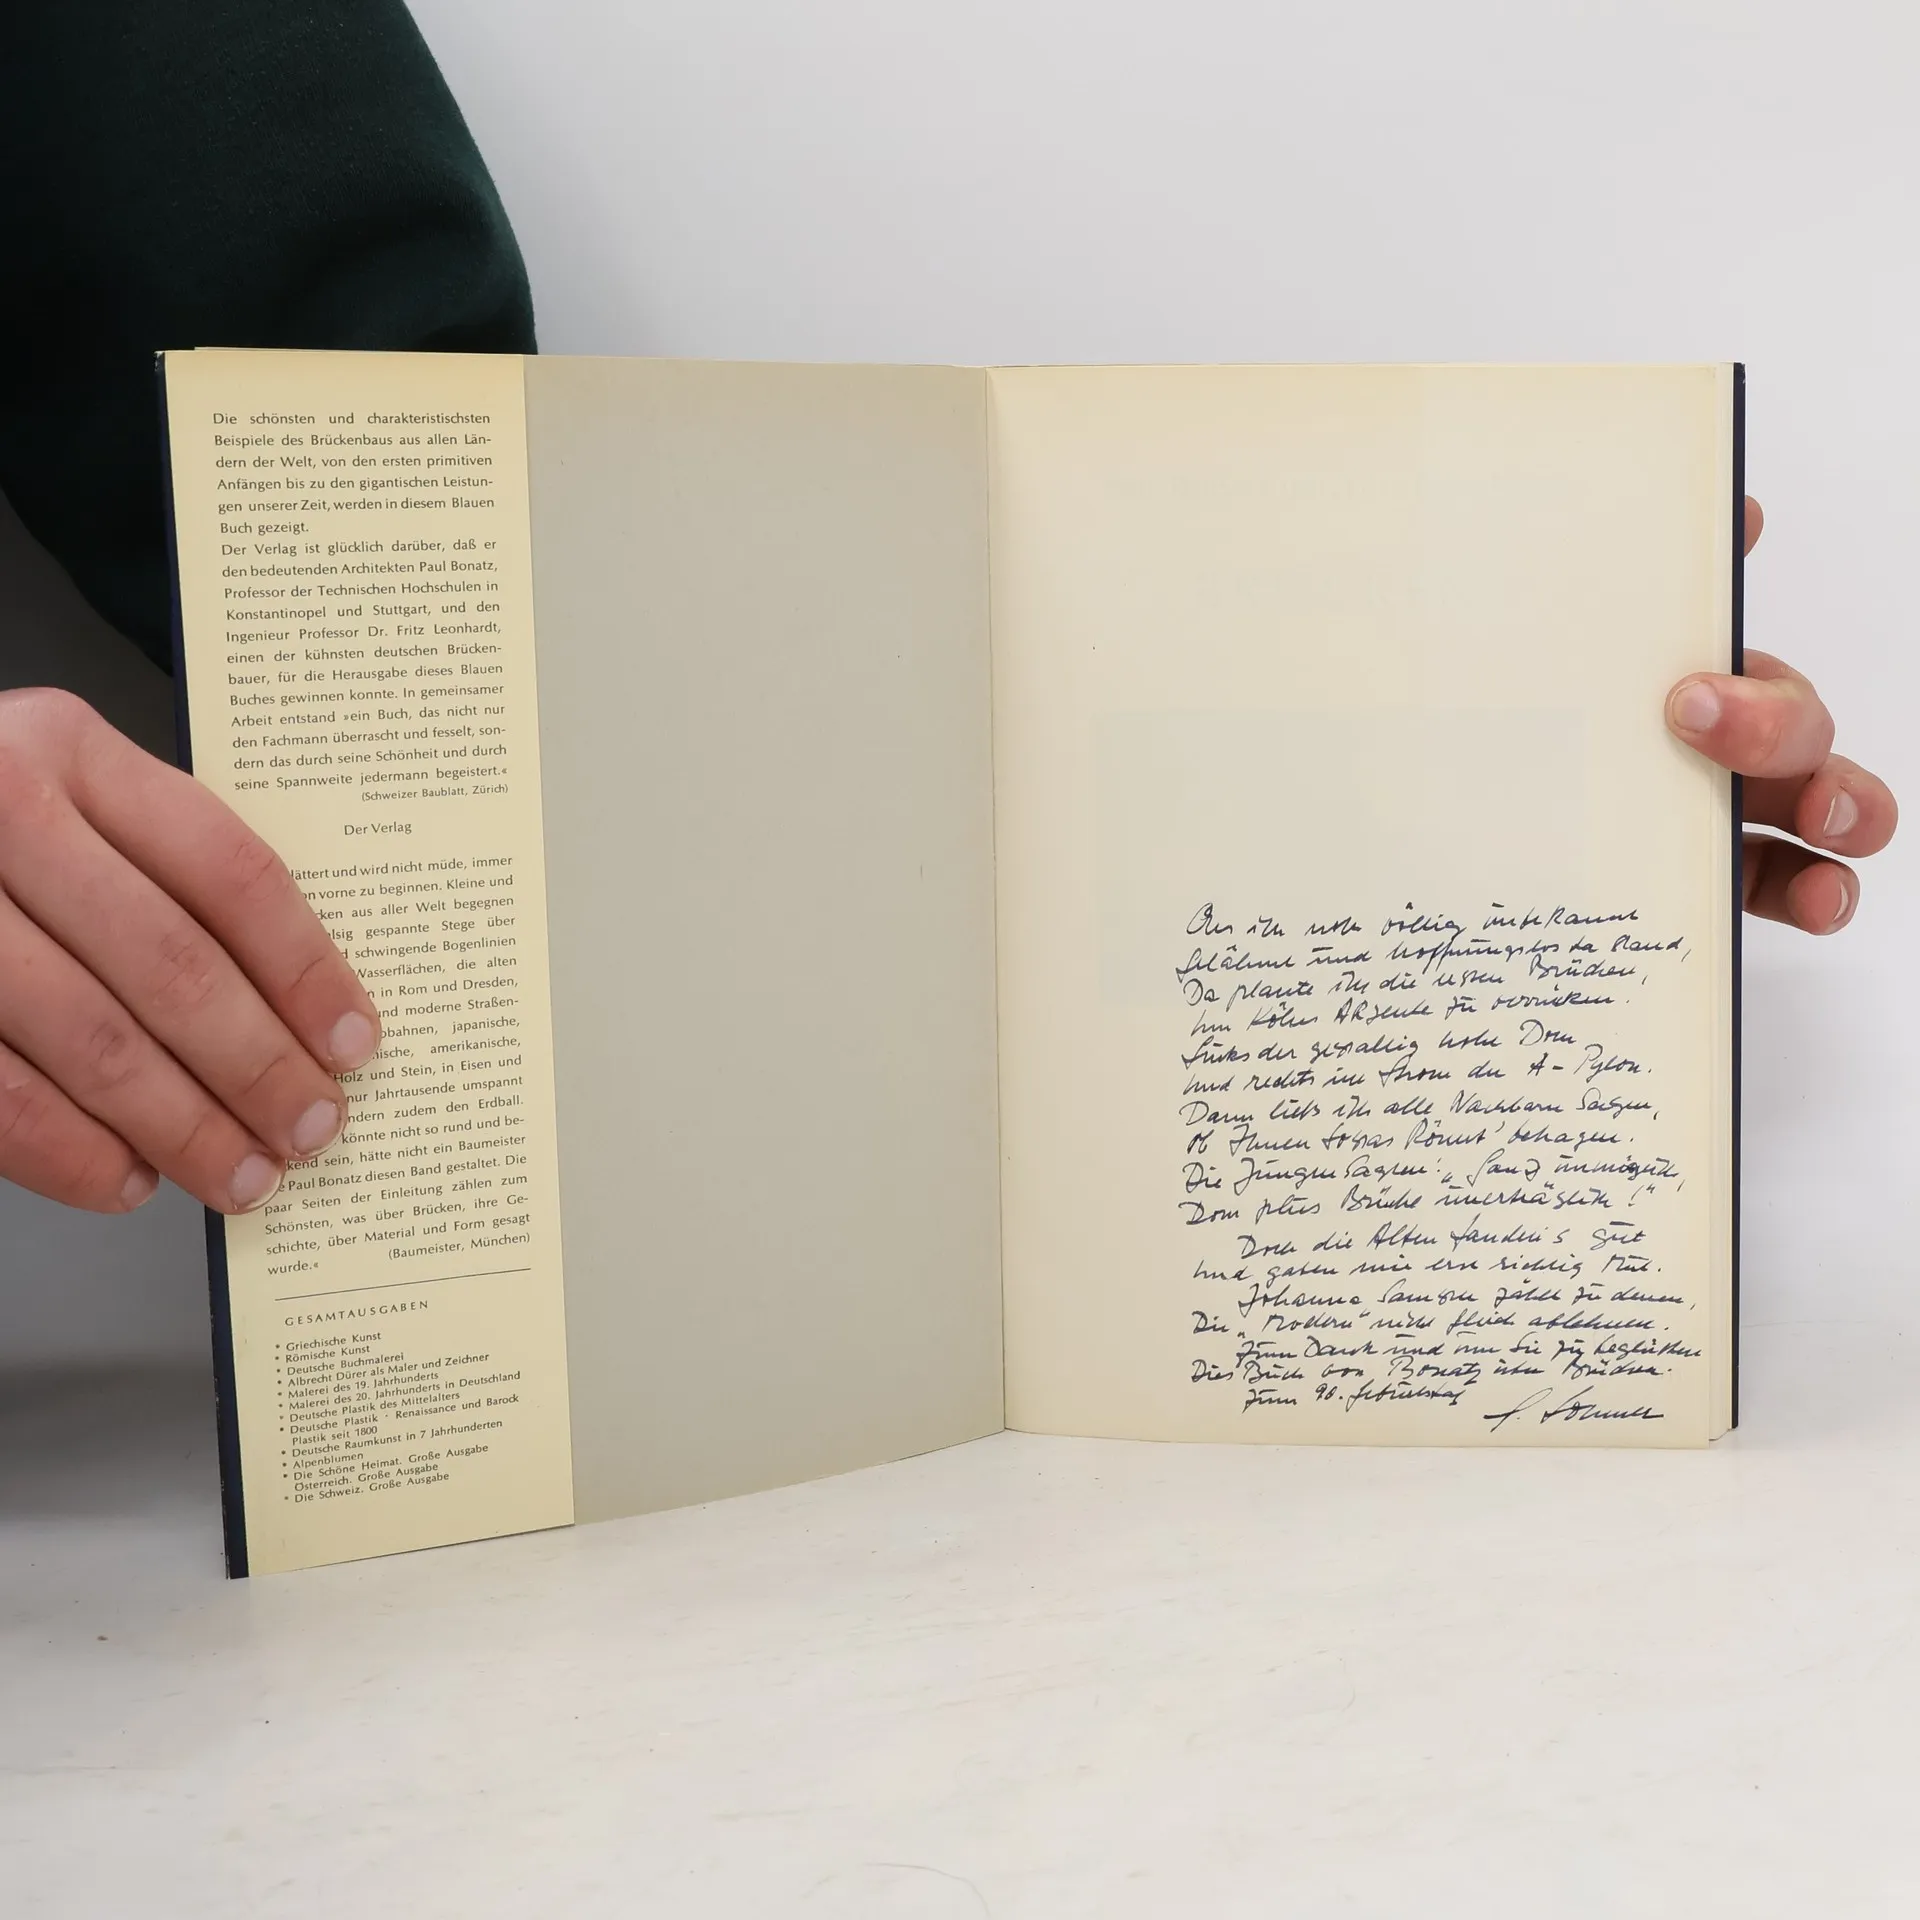 Die schönsten und charakteristischsten
Beispiele des Brückenbaus aus allen Län-
dern der Welt, von den ersten primitiven
Anfängen bis zu den gigantischen Leistun-
gen unserer Zeit, werden in diesem Blauen
Buch gezeigt.
Der Verlag ist glücklich darüber, daß er
den bedeutenden Architekten Paul Bonatz,
Professor der Technischen Hochschulen in
Konstantinopel und Stuttgart, und den
Ingenieur Professor Dr. Fritz Leonhardt,
einen der kühnsten deutschen Brücken-
bauer, für die Herausgabe dieses Blauen
Buches gewinnen konnte. In gemeinsamer
Arbeit entstand »ein Buch, das nicht nur
den Fachmann überrascht und fesselt, son-
dern das durch seine Schönheit und durch
seine Spannweite jedermann begeistert.«
(Schweizer Baublatt, Zürich)
Der Verlag
lättert und wird nicht müde, immer
on vorne zu beginnen. Kleine und
cken aus aller Welt begegnen
lsig gespannte Stege über
d schwingende Bogenlinien
Wasserflächen, die alten
n in Rom und Dresden,
und moderne Straßen-
obahnen, japanische,
nische, amerikanische,
Holz und Stein, in Eisen und
nur Jahrtausende umspannt
ndern zudem den Erdball.
könnte nicht so rund und be-
kend sein, hätte nicht ein Baumeister
e Paul Bonatz diesen Band gestaltet. Die
paar Seiten der Einleitung zählen zum
Schönsten, was über Brücken, ihre Ge-
schichte, über Material und Form gesagt
wurde.« (Baumeister, München)
GESAMTAUSGABEN
* Griechische Kunst
* Römische Kunst
* Deutsche Buchmalerei
* Albrecht Dürer als Maler und Zeichner
* Malerei des 19. Jahrhunderts
* Malerei des 20. Jahrhunderts in Deutschland
* Deutsche Plastik des Mittelalters
* Deutsche Plastik · Renaissance und Barock
Plastik seit 1800
* Deutsche Raumkunst in 7 Jahrhunderten
* Alpenblumen
* Die Schöne Heimat. Große Ausgabe
Österreich. Große Ausgabe
* Die Schweiz. Große Ausgabe
Als ich noch völlig unbekannt
gelähmt und hoffnungslos da stand,
Da plante ich die ersten Brücken,
um Kölns zu verrücken.
Links der gewaltig hohe Dom
und rechts im Strom der A-Pylon.
Dann ließ ich alle Nachbarn sagen,
ob Ihnen sowas könnt' behagen.
Die Jungen sagten: „Ganz unmöglich,
Dom plus Brücke unerträglich!"
Doch die Alten fanden's gut
und gaben mir erst richtig Mut.
Johanna zählt zu denen,
Die „Modern" nicht gleich ablehnen.
Zum Dank und um Sie zu beglücken
Dies Buch von Bonatz über Brücken.
Zum 90. Geburtstag